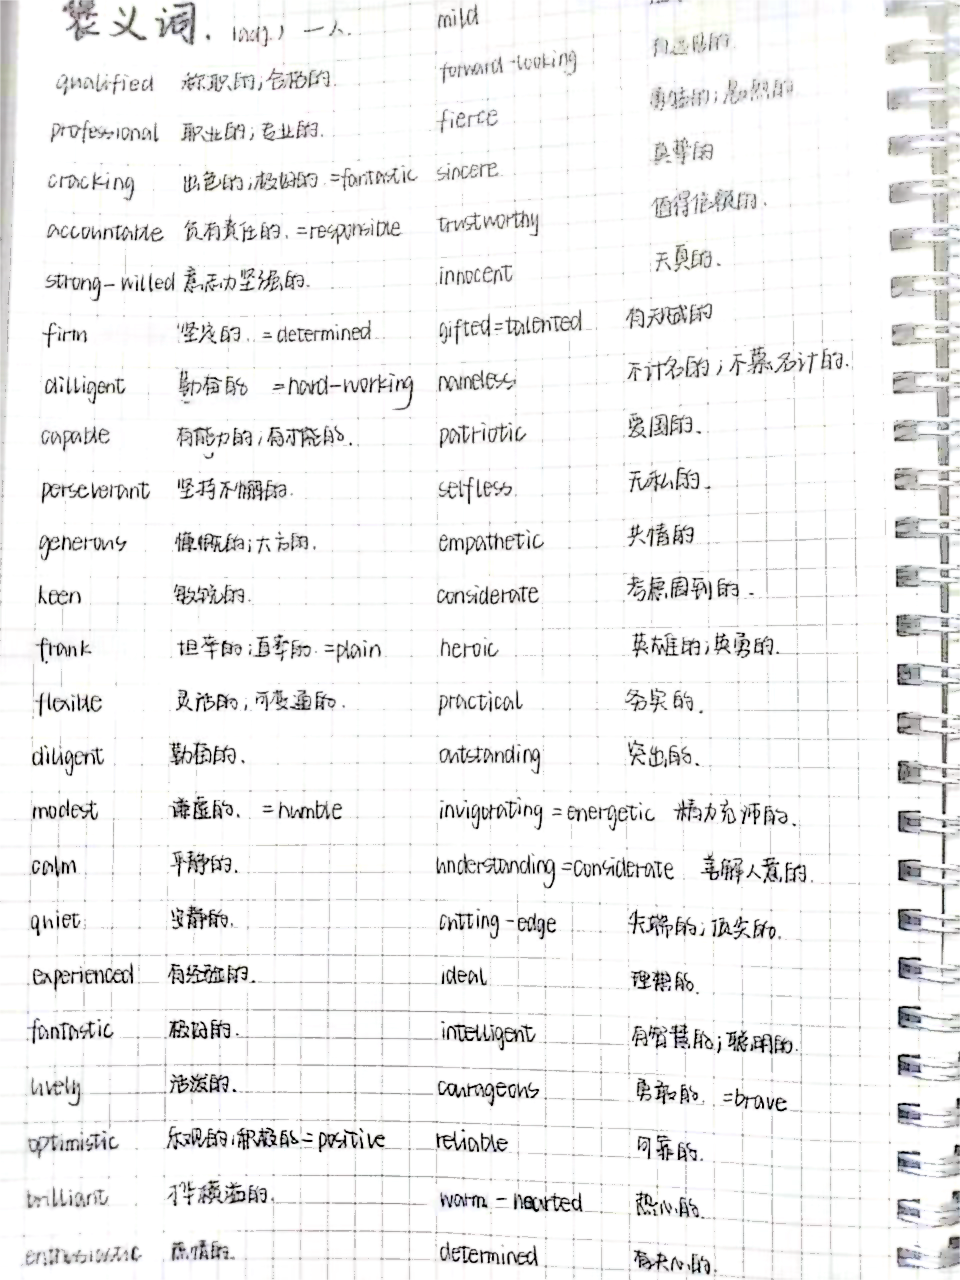 褒义词. (adj.) 一人.
qualified 称职的;合格的.
professional 职业的;专业的.
cracking 出色的;极好的 =fantastic
accountable 负有责任的. =responsible
strong-willed 意志力坚强的.
firm 坚定的. =determined
dilligent 勤奋的 =hard-working
capable 有能力的;有才能的.
perseverant 坚持不懈的.
generous 慷慨的;大方的.
keen 敏锐的.
frank 坦率的;直率的. =plain
flexible 灵活的;可变通的.
diligent 勤奋的.
modest 谦虚的. =humble
calm 平静的.
quiet 安静的.
experienced 有经验的.
fantastic 极好的.
lively 活泼的.
optimistic 乐观的;积极的=positive
brilliant 才华横溢的.
enthusiastic 热情的.
mild
forward-looking 有远见的.
fierce
sincere 真挚的
trustworthy 值得信赖的.
innocent 天真的.
gifted=talented 有天赋的
nameless 不计名的;不慕名计的.
patriotic 爱国的.
selfless 无私的.
empathetic 共情的
considerate 考虑周到的.
heroic 英雄的;英勇的.
practical 务实的.
outstanding 突出的.
invigorating =energetic 精力充沛的.
understanding=considerate 善解人意的.
cutting-edge 尖端的;顶尖的.
ideal 理想的.
intelligent 有智慧的;聪明的.
courageous 勇敢的. =brave
reliable 可靠的.
warm-hearted 热心的.
determined 有决心的.